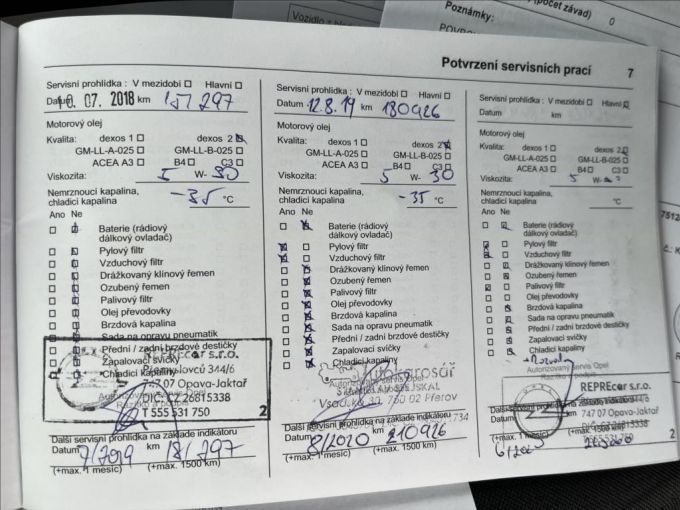 (počet závad) 0
Poznámky:
Potvrzení servisních prací 7
Servisní prohlídka : V mezidobí Hlavní
Datum 10. 07. 2018 km 157 297
Motorový olej
Kvalita: dexos 1 dexos 2
GM-LL-A-025 GM-LL-B-025
ACEA A3 B4 C3
Viskozita: 5 W- 30
Nemrznoucí kapalina,
chladicí kapalina -35 °C
Ano Ne
Baterie (rádiový
dálkový ovladač)
Pylový filtr
Vzduchový filtr
Drážkovaný klínový řemen
Ozubený řemen
Palivový filtr
Olej převodovky
Brzdová kapalina
Sada na opravu pneumatik
Přední / zadní brzdové destičky
Zapalovací svíčky
Chladicí kapaliny
REPREcar s.r.o.
Přemyslovců 344/6
747 07 Opava-Jaktař
DIČ: CZ 26815338
T 555 531 750 2
Další servisní prohlídka na základě indikátoru
Datum 7/2019 km 187 297
(+max. 1 měsíc) (+max. 1500 km)
Servisní prohlídka : V mezidobí Hlavní
Datum 12.8.19 km 180926
Motorový olej
Kvalita: dexos 1 dexos 2
GM-LL-A-025 GM-LL-B-025
ACEA A3 B4 C3
Viskozita: 5 W- 30
Nemrznoucí kapalina,
chladicí kapalina -35 °C
Ano Ne
Baterie (rádiový
dálkový ovladač)
Pylový filtr
Vzduchový filtr
Drážkovaný klínový řemen
Ozubený řemen
Palivový filtr
Olej převodovky
Brzdová kapalina
Sada na opravu pneumatik
Přední / zadní brzdové destičky
Zapalovací svíčky
Chladicí kapaliny
Autorizovaný servis Opel
750 02 Přerov
Další servisní prohlídka na základě indikátoru
Datum 8/2020 km 210926
(+max. 1 měsíc) (+max. 1500 km)
Servisní prohlídka : V mezidobí Hlavní
Datum km
Motorový olej
Kvalita: dexos 1 dexos 2
GM-LL-A-025 GM-LL-B-025
ACEA A3 B4 C3
Viskozita: 5 W-
Nemrznoucí kapalina,
chladicí kapalina °C
Ano Ne
Baterie (rádiový
dálkový ovladač)
Pylový filtr
Vzduchový filtr
Drážkovaný klínový řemen
Ozubený řemen
Palivový filtr
Olej převodovky
Brzdová kapalina
Sada na opravu pneumatik
Přední / zadní brzdové destičky
Zapalovací svíčky
Chladicí kapaliny
Autorizovaný servis Opel
REPREcar s.r.o.
747 07 Opava-Jaktař
Další servisní prohlídka na základě indikátoru
Datum km
(+max. 1 měsíc) (+max. 1500 km)
2